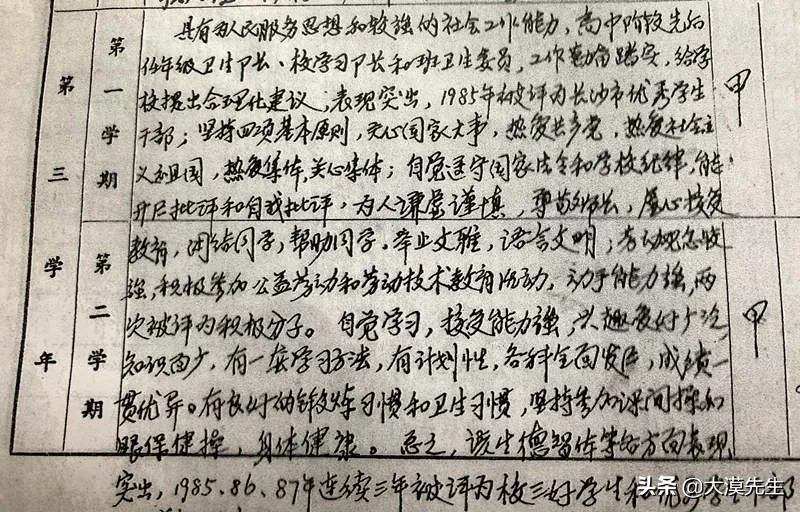 第三学年
第一学期
第二学期
具有为人民服务思想和较强的社会工作能力,高中阶段先后
任年级卫生部长、校学习部长和班卫生委员,工作勤奋踏实,给学
校提出合理化建议,表现突出,1985年被评为长沙市优秀学生
干部;坚持四项基本原则,关心国家大事,热爱共产党,热爱社会主
义祖国,热爱集体,关心集体;自觉遵守国家法令和学校纪律,能
开展批评和自我批评,为人谦虚谨慎,尊敬师长,虚心接受
教育,团结同学,帮助同学。举止文雅,语言文明;劳动观念较
强,积极参加公益劳动和劳动技术教育活动,动手能力强,两
次被评为积极分子。自觉学习,接受能力强,兴趣爱好广泛,
知识面广,有一套学习方法,有计划性,各科全面发展,成绩一
贯优异。有良好的锻炼习惯和卫生习惯,坚持参加课间操和
眼保健操,身体健康。总之,该生德智体等各方面表现
突出,1985、86、87年连续三年被评为校三好学生和优秀学生干部
甲
甲
头条 @大漠先生